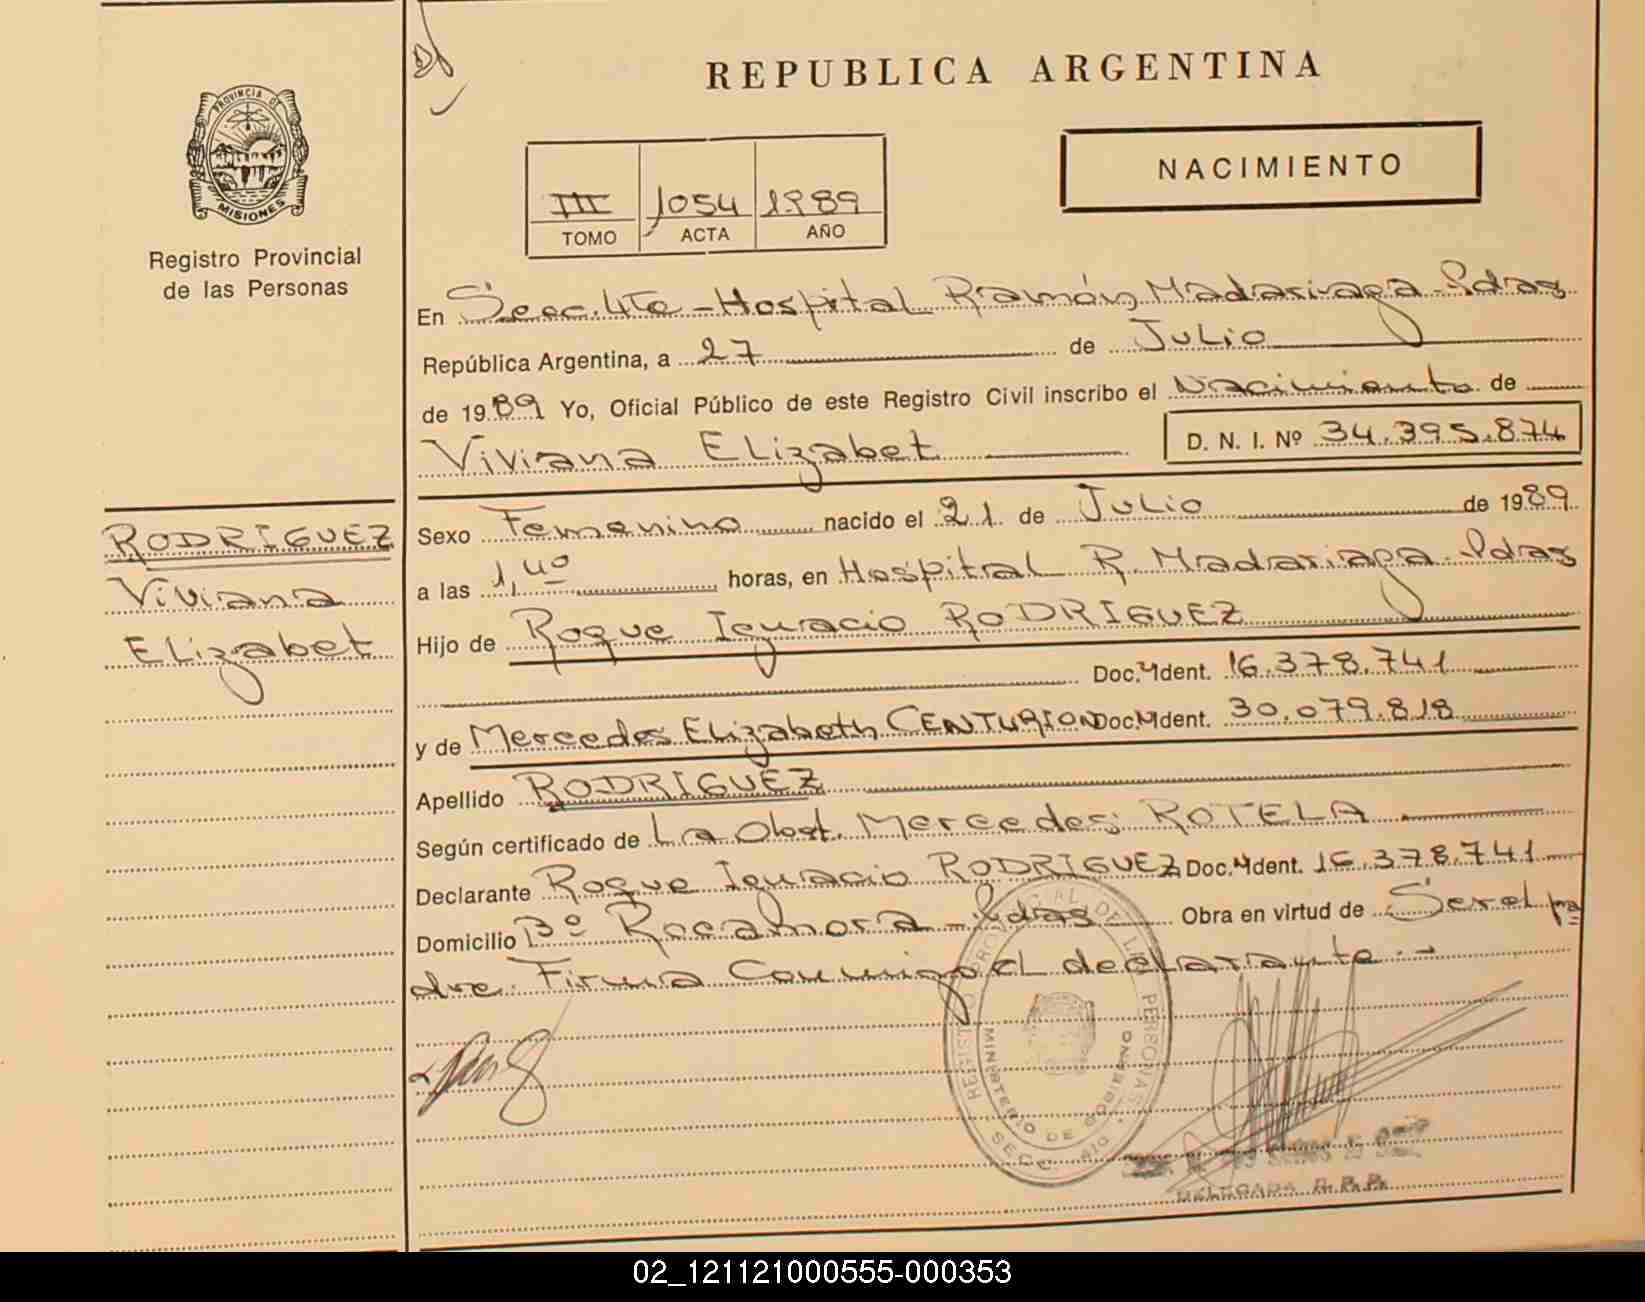 REPUBLICA ARGENTINA
PROVINCIA DE
MISIONES
Registro Provincial
de las Personas
III 1054 1989
TOMO ACTA AÑO
NACIMIENTO
En Secc. 4ta - Hospital Ramón Madariaga - Pdas
República Argentina, a 27 de Julio
de 1989 Yo, Oficial Público de este Registro Civil inscribo el Nacimiento de
Viviana Elizabet D. N. I. Nº 34.395.874
RODRIGUEZ
Viviana
Elizabet
Sexo Femenino nacido el 21 de Julio de 1989
a las 1,40 horas, en Hospital R. Madariaga - Pdas
Hijo de Roque Ignacio RODRIGUEZ
Doc. Ident. 16.378.741
y de Mercedes Elizabeth CENTURION Doc. Ident. 30.079.818
Apellido RODRIGUEZ
Según certificado de La Obst. Mercedes ROTELA
Declarante Roque Ignacio RODRIGUEZ Doc. Ident. 16.378.741
Domicilio Bº Rocamora - Pdas Obra en virtud de Ser el pa
dre. Firma Conmigo el declarante.-
REGISTRO PROVINCIAL DE LAS PERSONAS
MINISTERIO DE GOBIERNO
SECC.
DELEGADA R.P.P.
02_121121000555-000353